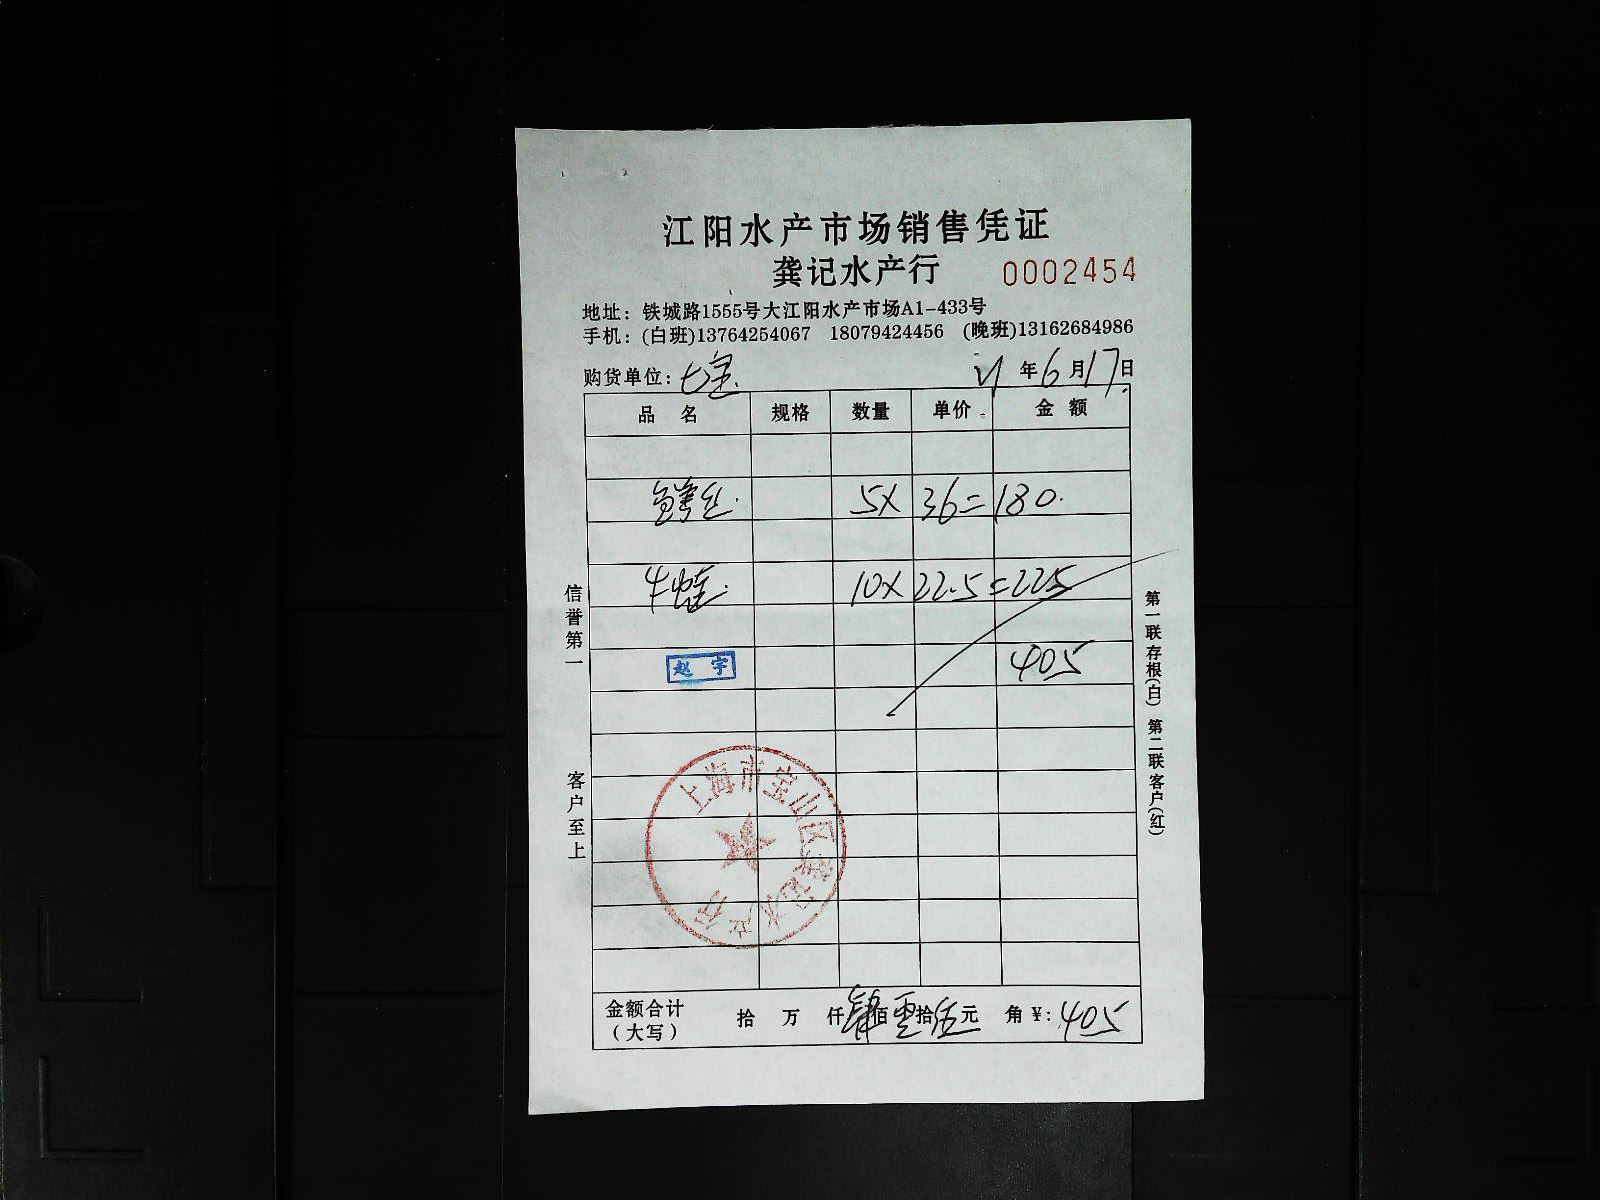 江阳水产市场销售凭证
龚记水产行 0002454
地址：铁城路1555号大江阳水产市场A1-433号
手机：(白班)13764254067 18079424456 (晚班)13162684986
购货单位：七宝 21年6月17日
品名 规格 数量 单价 金额
鳝丝 5× 36= 180
牛蛙 10× 22.5 =225
赵宇 405
信誉第一 客户至上
第一联存根(白) 第二联客户(红)
上海市宝山区龚记水产行
金额合计 拾 万 仟 肆佰 零拾 伍元 角 ¥：405
（大写）